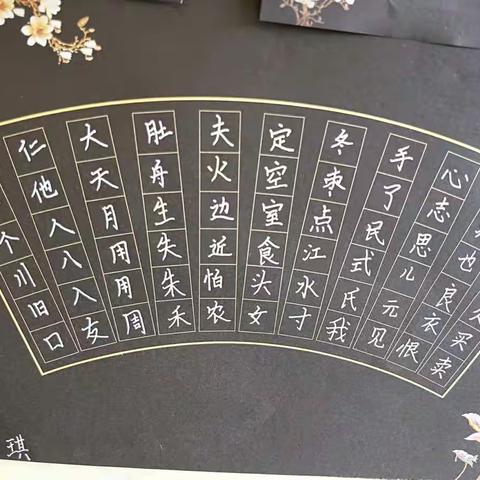 个川旧口
仁他人八入友
大天月用用周
肚舟生失朱禾
夫火边近怕农
定空室食头女
冬枣点江水寸
手了民式氏我
心志思儿元见
也良衣恨
买卖
琪